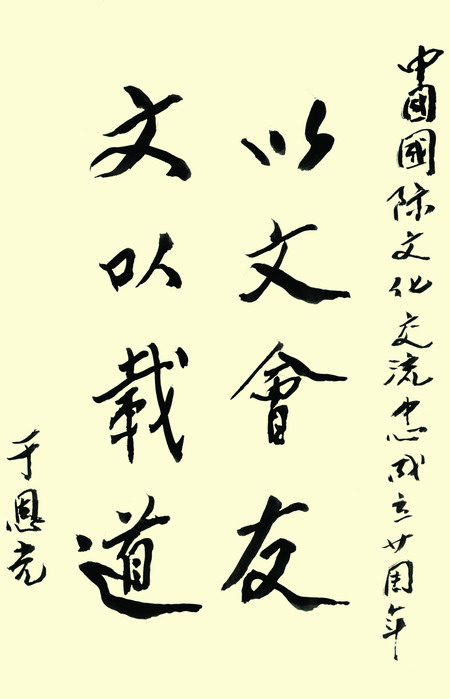 中国國际文化交流中心成立廿周年
以文會友
文以載道
于恩光